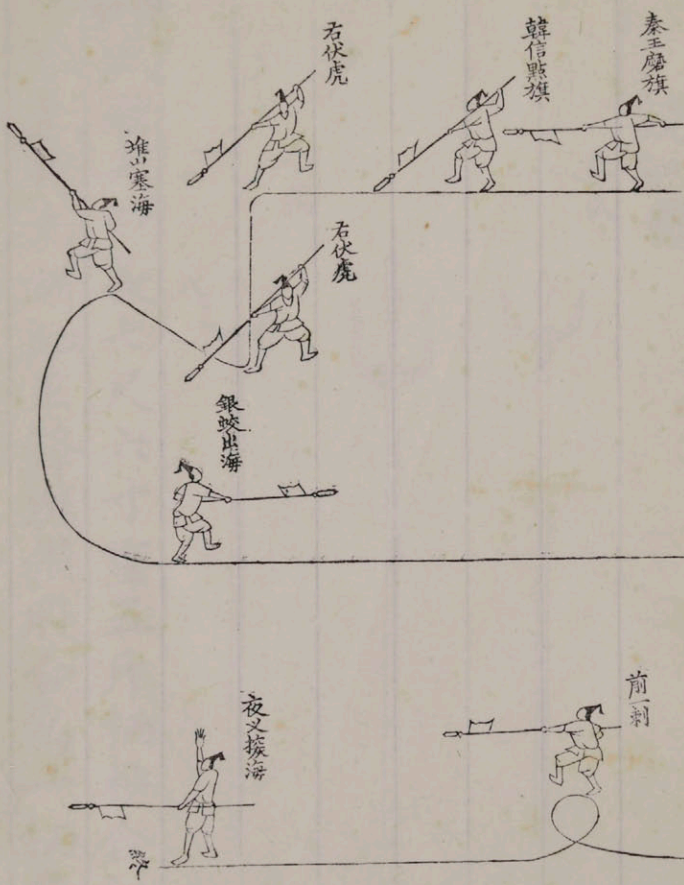 秦王磨旗
韓信點旗
右伏虎
推山塞海
右伏虎
銀蛟出海
前一刺
夜叉探海